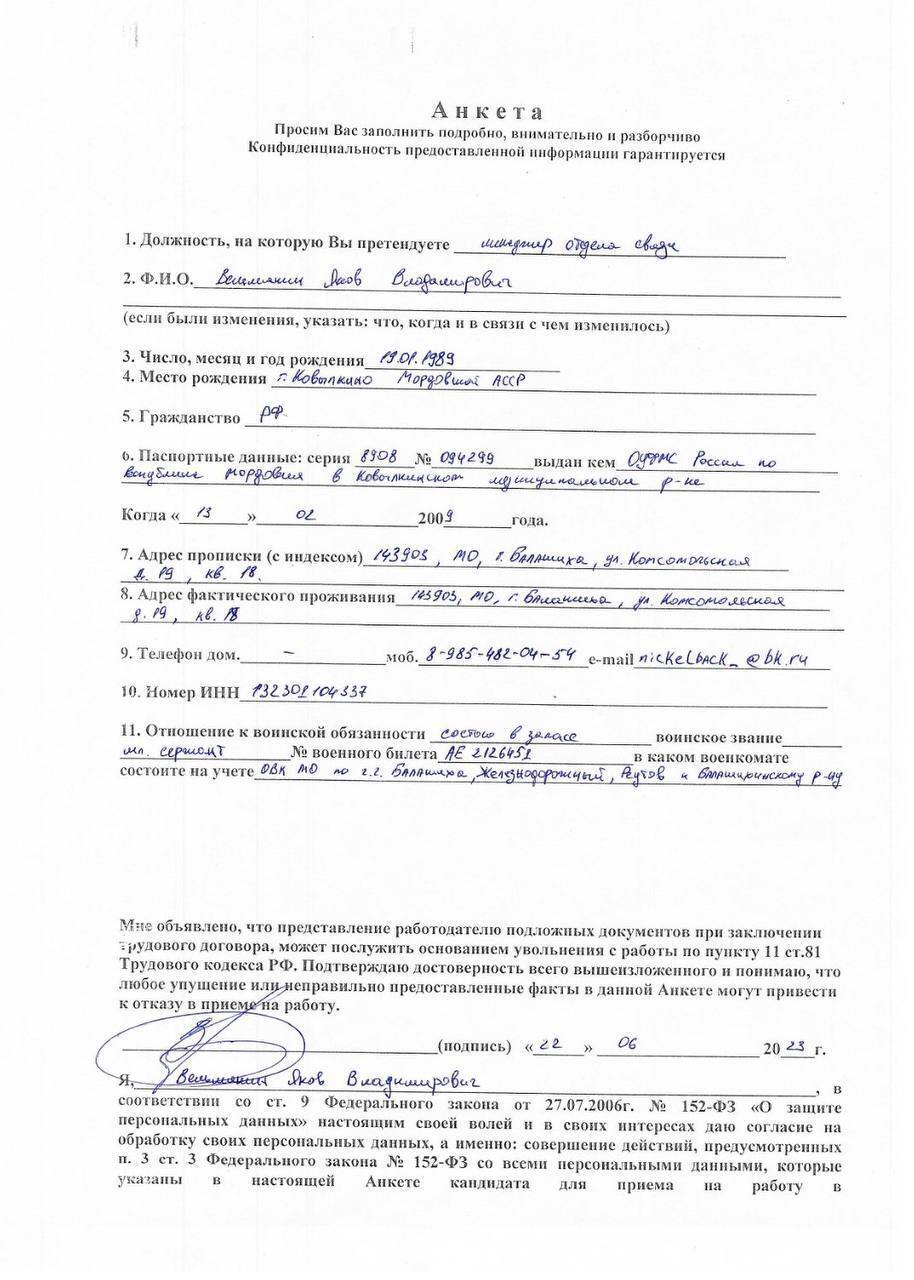 Анкета
Просим Вас заполнить подробно, внимательно и разборчиво
Конфиденциальность предоставленной информации гарантируется
1. Должность, на которую Вы претендуете менеджер отдела связи
2. Ф.И.О. Яков Владимирович
(если были изменения, указать: что, когда и в связи с чем изменилось)
3. Число, месяц и год рождения 19.01.1989
4. Место рождения г. Ковылкино Мордовской АССР
5. Гражданство РФ
6. Паспортные данные: серия 8908 № 094299 выдан кем ОУФМС России по
республике Мордовия в Ковылкинском муниципальном р-не
Когда « 13 » 02 2009 года.
7. Адрес прописки (с индексом) 143903, МО, г. Балашиха, ул. Комсомольская
д. 19, кв. 18.
8. Адрес фактического проживания 143903, МО, г. Балашиха, ул. Комсомольская
д. 19, кв. 18
9. Телефон дом. – моб. 8-985-482-04-54 e-mail nickelback_@bk.ru
10. Номер ИНН 132301104337
11. Отношение к воинской обязанности состою в запасе воинское звание
мл. сержант № военного билета АЕ 2126451 в каком военкомате
состоите на учете ОВК МО по г.г. Балашиха, Железнодорожный, Реутов и Балашихинскому р-ну
Мне объявлено, что представление работодателю подложных документов при заключении
трудового договора, может послужить основанием увольнения с работы по пункту 11 ст.81
Трудового кодекса РФ. Подтверждаю достоверность всего вышеизложенного и понимаю, что
любое упущение или неправильно предоставленные факты в данной Анкете могут привести
к отказу в приеме на работу.
(подпись) « 22 » 06 2023 г.
Я, Яков Владимирович , в
соответствии со ст. 9 Федерального закона от 27.07.2006г. № 152-ФЗ «О защите
персональных данных» настоящим своей волей и в своих интересах даю согласие на
обработку своих персональных данных, а именно: совершение действий, предусмотренных
п. 3 ст. 3 Федерального закона № 152-ФЗ со всеми персональными данными, которые
указаны в настоящей Анкете кандидата для приема на работу в